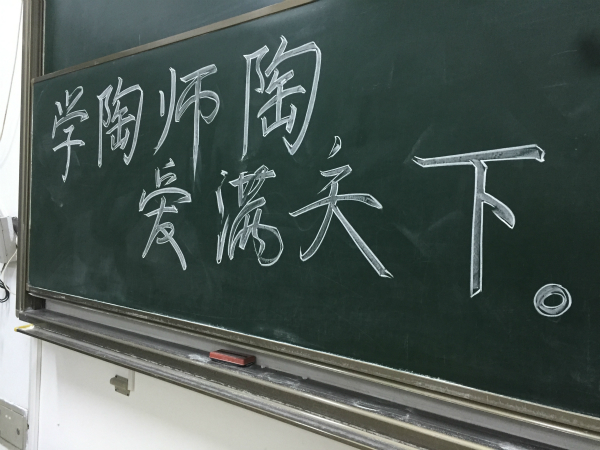 学陶师陶
爱满天下。